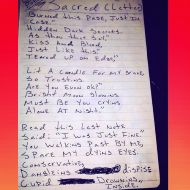 Sacred (Letter)
Burned this Page, Just In
Case,"
Hidden Dark Secrets
As thou this Sin,"
Kiss and Bleed,
Just Like this"
Teared up on Edge,"
Lit A Candle For My Grave
So Trusting
Are You Even OK?"
Bright Moon Slowing
Must Be You Crying
Alone At Night,"
Read this Last Note
Said "I Was Just Fine"
You Walking Past By Me,
Spare My Dying Eyes.
Conservative,
Dangling DISPISE
Cupid Drowning
Inside.